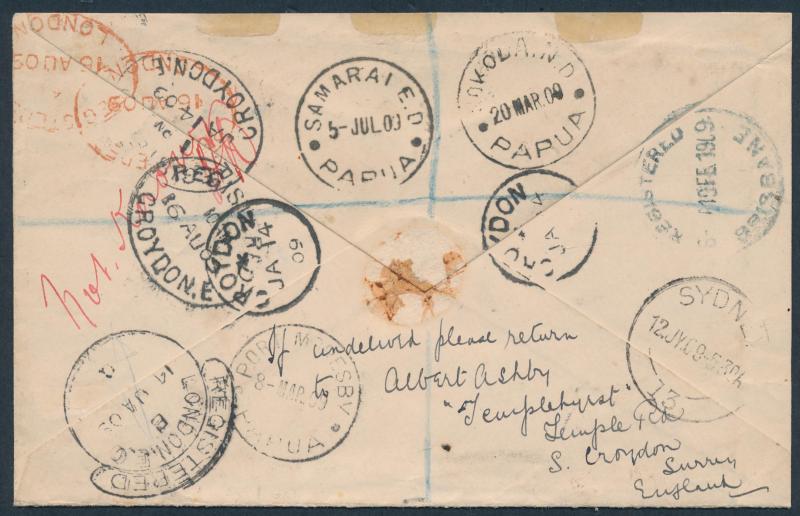 LONDON
16 AU 09
REGISTERED
16 AU 09
CROYDON.E
JA 14 09
SAMARAI E.D
5-JUL.09
PAPUA
KOKODA. N.D
20 MAR.09
PAPUA
REGISTERED
FE 1909
BRISBANE
REG
16 AU 09
CROYDON.E
CROYDON
JA 14
09
CROYDON
JA 14
Not
PORT MORESBY
8-MAR.09
PAPUA
SYDNEY
12 JY.09
13
REGISTERED
LONDON.E.C
14 JA 09
If undelivd please return
to Albert Ashby
"Templehurst"
Temple Rd
S. Croydon
Surrey
England